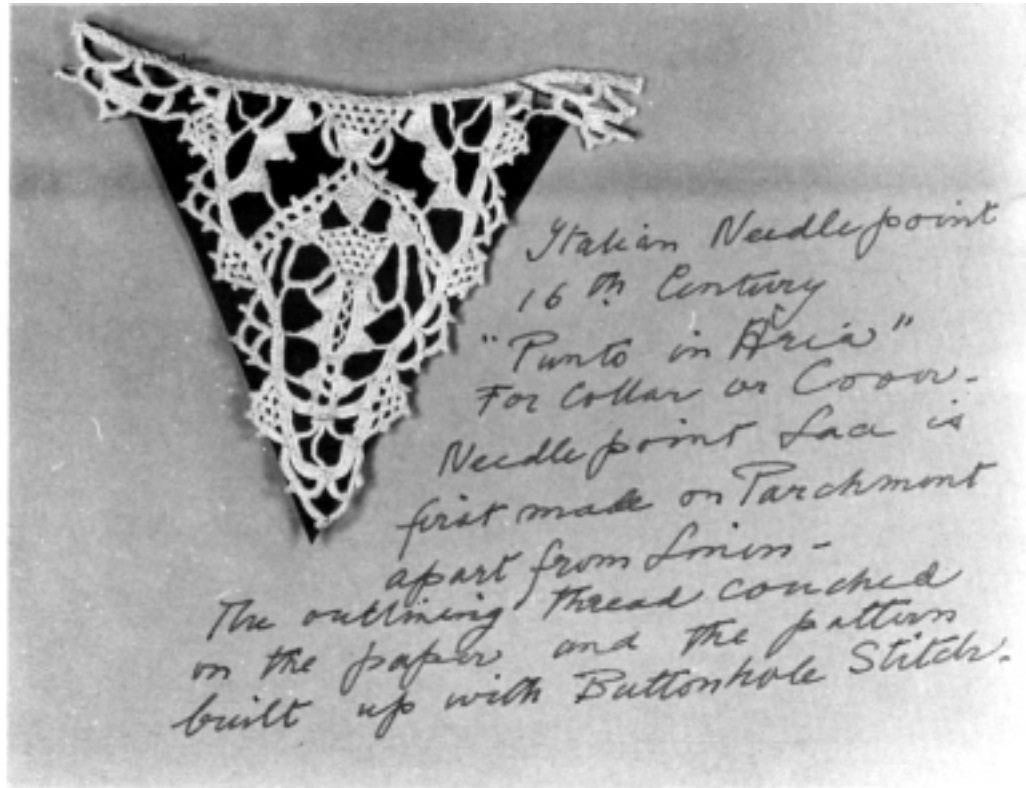 Italian Needlepoint
16th Century
"Punto in Aria"
For Collar or Cover.
Needlepoint Lace is
first made on Parchment
apart from Linen -
The outlining thread couched
on the paper and the pattern
built up with Buttonhole Stitch.